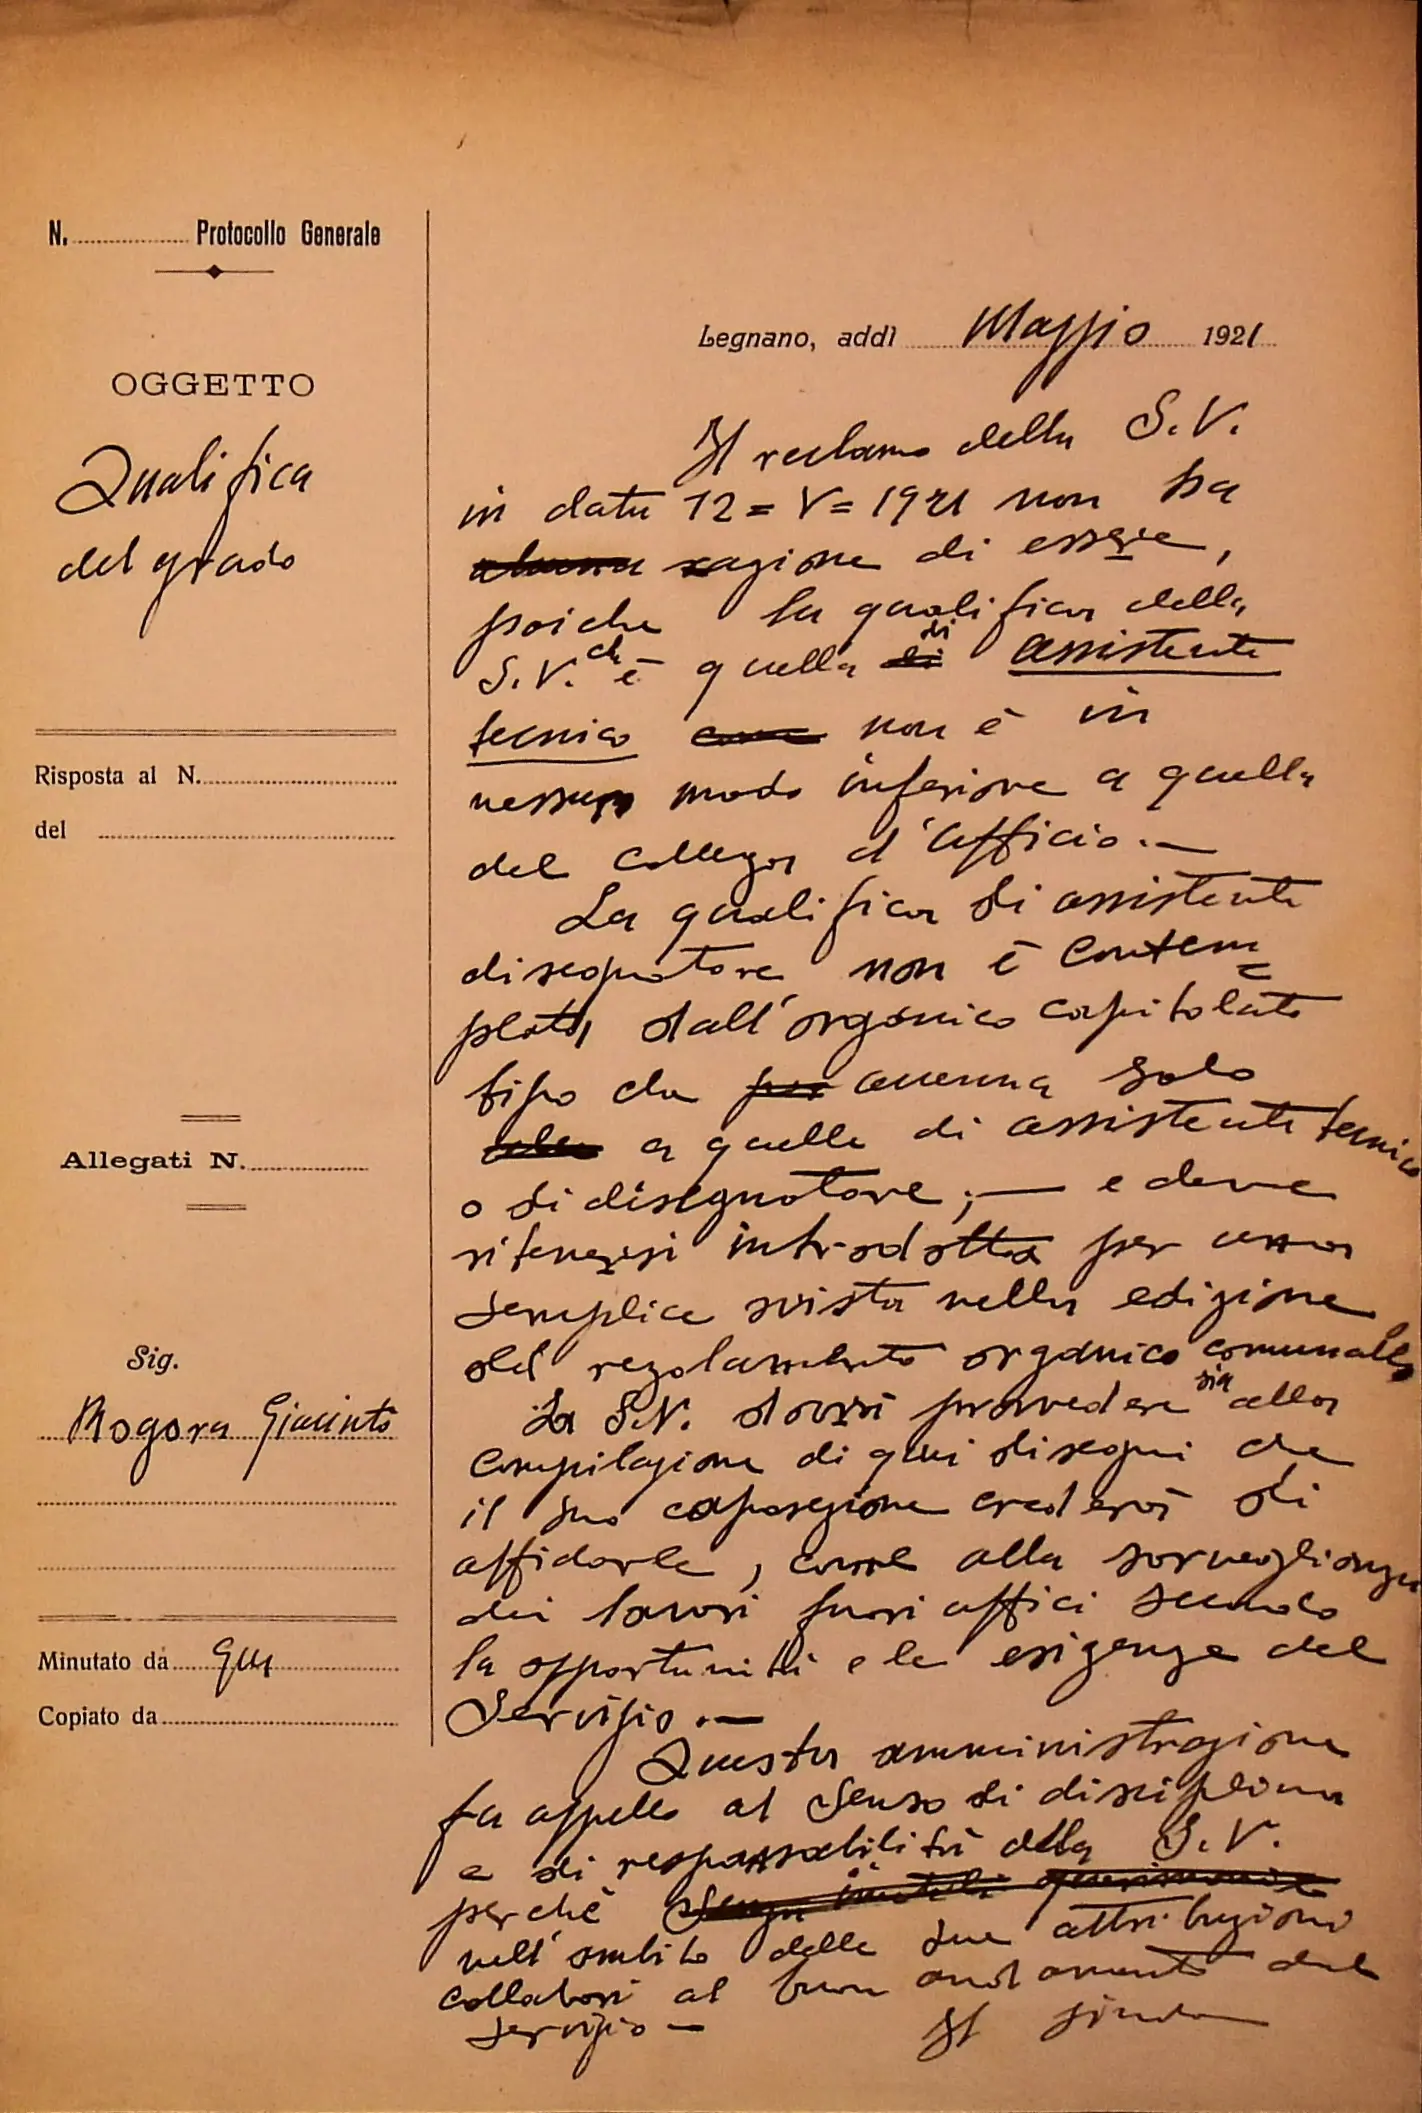 N. Protocollo Generale
OGGETTO
Qualifica
del grado
Risposta al N.
del
Allegati N.
Sig.
Rogora Giacinto
Minutato da
Copiato da
Legnano, addì Maggio 1921
Il reclamo della S.V.
in data 12 = V = 1921 non ha
alcuna ragione di essere,
poiche la qualifica della
S.V. ch è quella di assistente
tecnico come non è in
nessun modo inferiore a quella
del collega d'ufficio.—
La qualifica di assistente
disegnatore non è contem=
plata dall'organico capitolato
tipo che per accenna solo
a quelle di assistente tecnico
o di disegnatore;— e deve
ritenersi introdotta per una
semplice svista nella edizione
del regolamento organico comunale
La S.V. dovrà provvedere sia alla
compilazione di quei disegni che
il suo caposezione crederà di
affidarle, come alla sorveglianza
dei lavori fuori uffici secondo
la opportunità e le esigenze del
Servizio.—
Questa amministrazione
fa appello al senso di disciplina
e di responsabilità della S.V.
perchè senza inutili querimonie
nell'ambito delle sue attribuzioni
collabori al buon andamento del
servizio—
Il sindaco